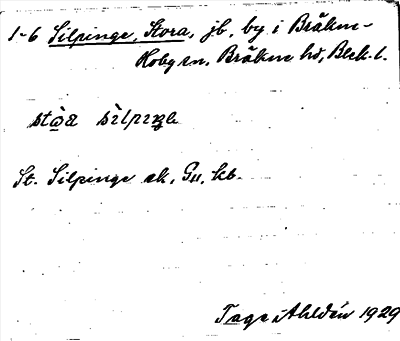 1-6 Silpinge, Stora, jb, by i Bräkne-
Hoby sn, Bräkne hd, Blek. l.
St. Silpinge sk, Gu, kb.
Tage Ahldén 1929